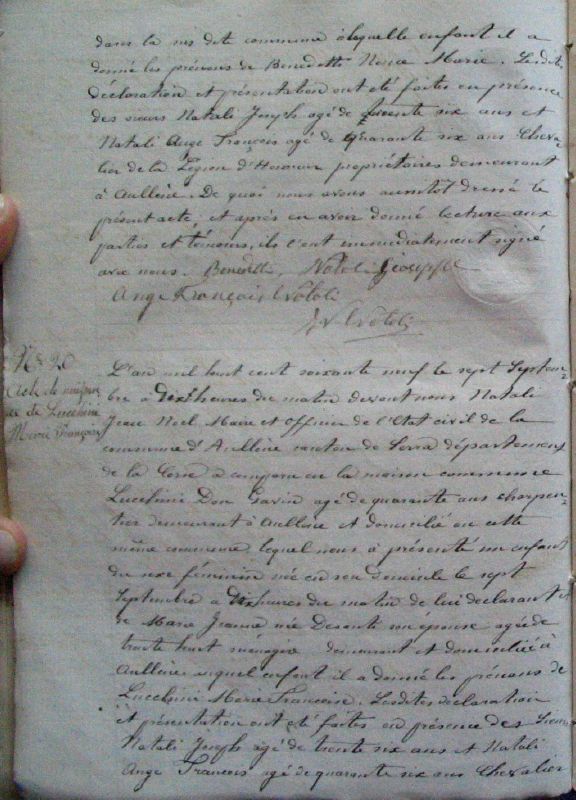 dans la sus dite commune à laquelle enfant il a
donné les prénoms de Benedetti Marie. Lesdites
déclaration et présentation ont été faites en présence
des sieurs Natali Joseph agé de trente six ans et
Natali Ange François agé de quarante six ans Cheva-
lier de la Légion d'Honneur propriétaires demeurant
à Aullène. De quoi nous avons aussitôt dressé le
présent acte; et après en avoir donné lecture aux
parties et témoins, ils l'ont immédiatement signé
avec nous. Benedetti, Natali Gioseppe
Ange François Natali
Natali
No 20
Acte de naissan
ce de Lucchini
Marie Françoise
L'an mil huit cent soixante neuf le sept Septem-
bre à dix heures du matin devant nous Natali
Jean Noel Maire et officier de l'Etat civil de la
commune d'Aullène canton de Serra département
de la Corse a comparu en la maison commune
Lucchini Don Gavin agé de quarante ans charpen-
tier demeurant à Aullène et domicilié en cette
même commune lequel nous à présenté un enfant
du sexe féminin née en son domicile le sept
Septembre a dix heures du matin de lui déclarant et
de Marie Jeanne née son épouse agée de
trente huit ménagère demeurant et domiciliée à
Aullène auquel enfant il a donné les prénoms de
Lucchini Marie Françoise. Lesdites déclaration
et présentation ont été faites en présence des Sieurs
Natali Joseph agé de trente six ans et Natali
Ange François agé de quarante six ans Chevalier